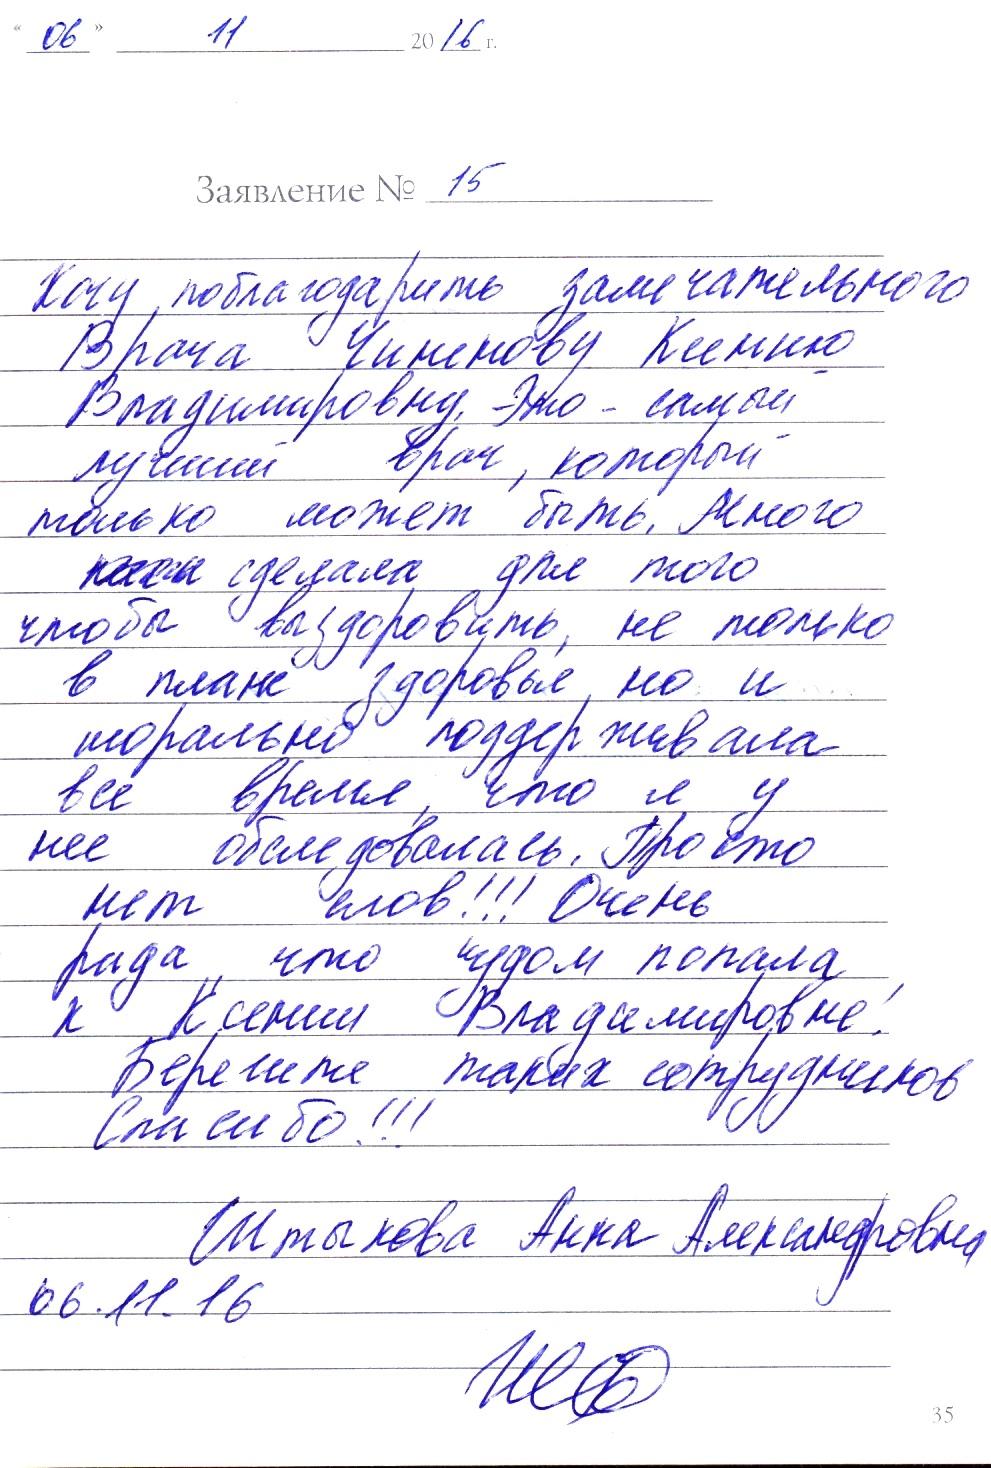 "06" 11 2016 г.
Заявление № 15
Хочу поблагодарить замечательного
Врача Чиненову Ксению
Владимировну. Это - самый
лучший врач, который
только может быть. Много
сделала для того
чтобы выздоровить, не только
в плане здоровья, но и
морально поддерживала
все время, что я у
нее обследовалась. Просто
нет слов!!! Очень
рада, что чудом попала
к Ксении Владимировне!
Берегите таких сотрудников
Спасибо!!!
Штыкова Анна Александровна
06.11.16
35